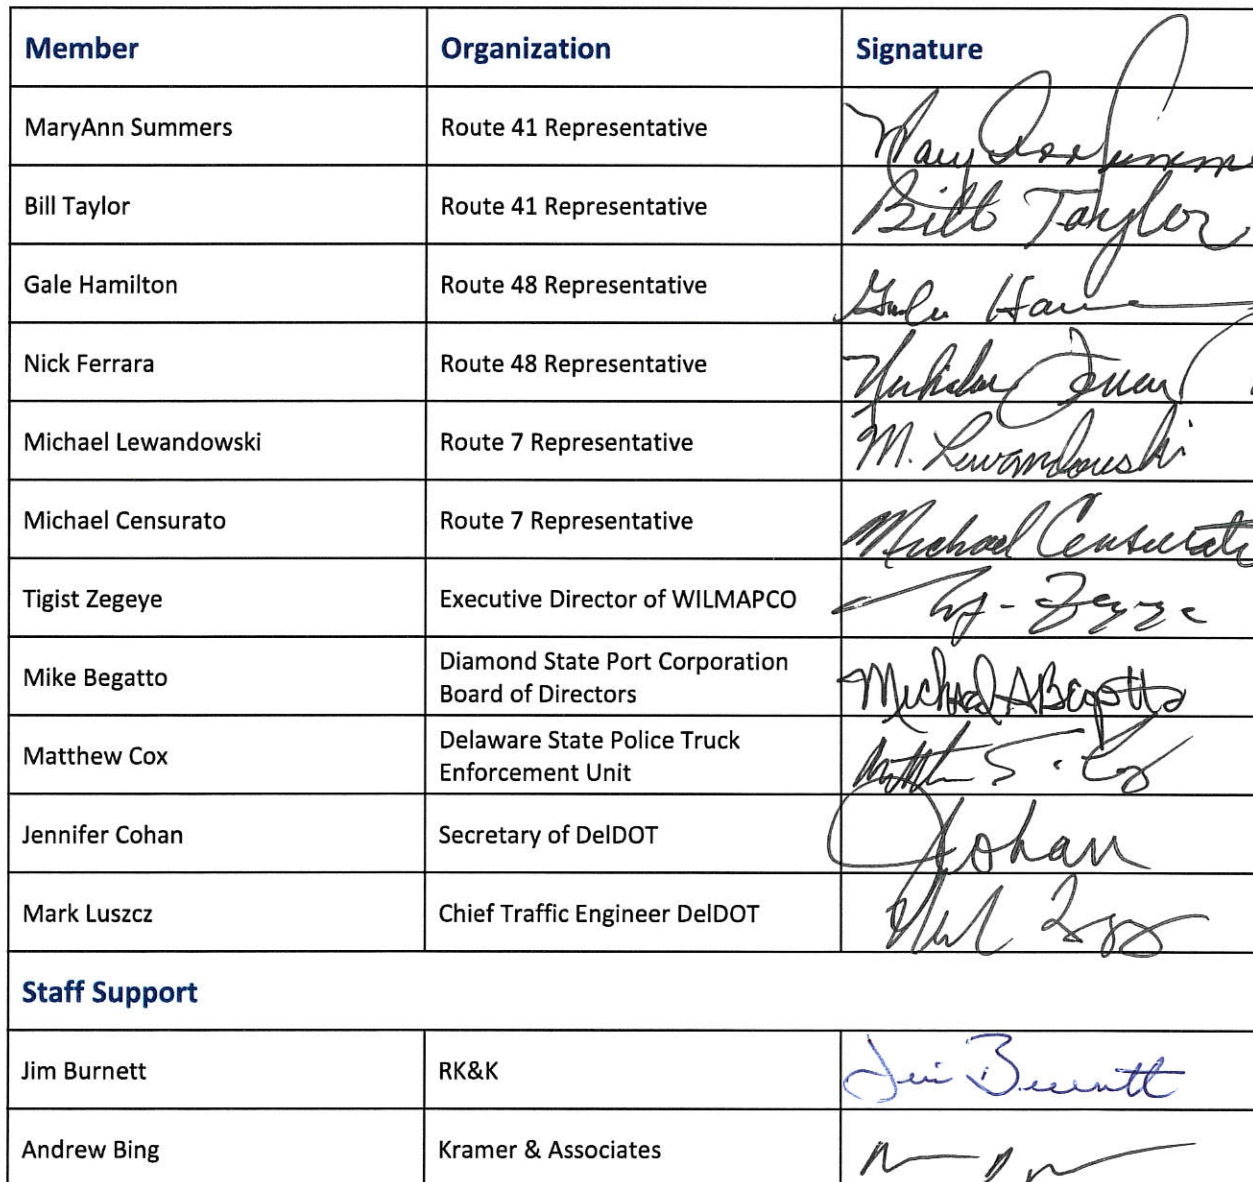 Member Organization Signature
MaryAnn Summers Route 41 Representative Mary Ann Summe
Bill Taylor Route 41 Representative Bill Taylor
Gale Hamilton Route 48 Representative Gale Ham
Nick Ferrara Route 48 Representative Nicholas
Michael Lewandowski Route 7 Representative M. Lewandowski
Michael Censurato Route 7 Representative Michael Censurato
Tigist Zegeye Executive Director of WILMAPCO
Mike Begatto Diamond State Port Corporation
Board of Directors Michael A Begatto
Matthew Cox Delaware State Police Truck
Enforcement Unit
Jennifer Cohan Secretary of DelDOT JCohan
Mark Luszcz Chief Traffic Engineer DelDOT
Staff Support
Jim Burnett RK&K Jim Burnett
Andrew Bing Kramer & Associates